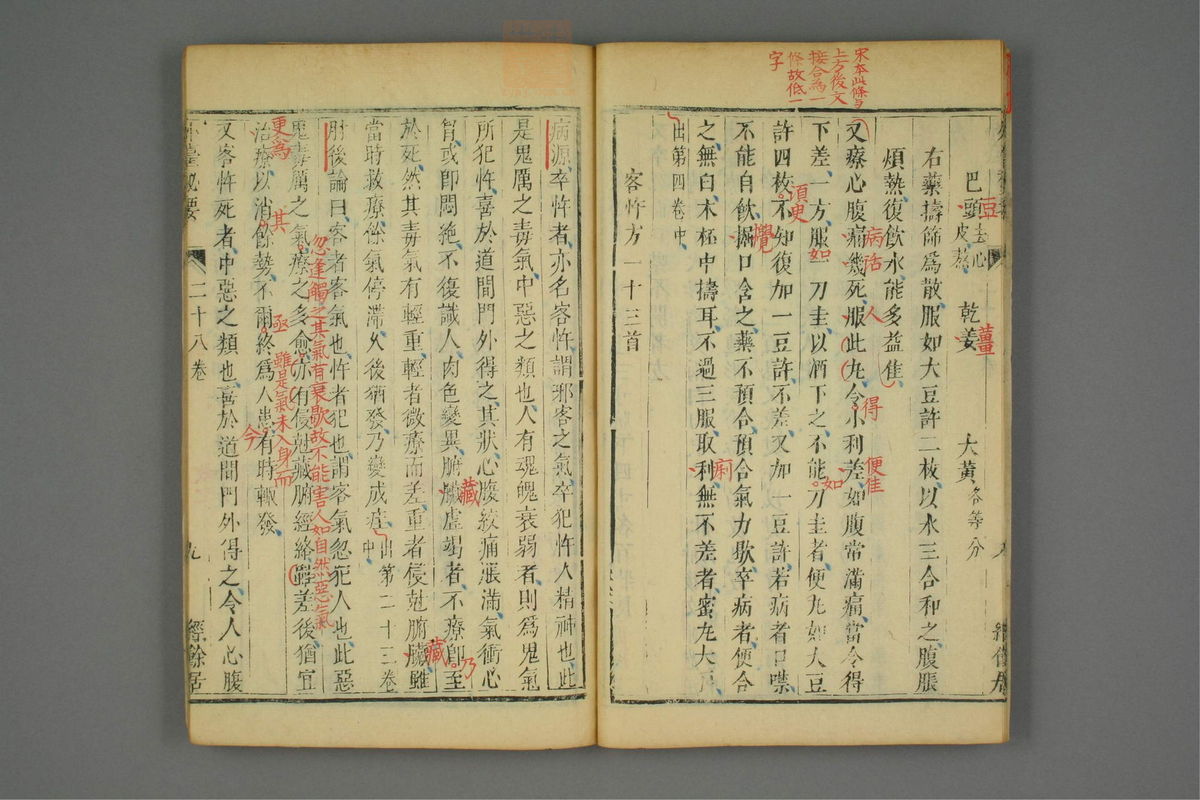 宋本此條与
上方後文
接合為一
條故低一
字
巴頭去心皮熬　乾姜　大黃各等分
豆
薑
右藥擣篩爲散服如大豆許二枚以水三合和之腹脹
煩熱復飲水能多益佳
又療心腹痛幾死服此丸令小利差如腹常滿痛當令得
病活
人
得
便佳
下差一方服一刀圭以酒下之不能刀圭者便丸如大豆
如
如
許四枚不知復加一豆許不差又加一豆許若病者口噤
須臾
不能自飲搦口含之藥不預合預合氣力歇卒病者便合
覺
之無臼木杯中擣耳不過三服取利無不差者蜜丸大
痢
出第四卷中
客忤方一十三首
病源卒忤者亦名客忤謂邪客之氣卒犯忤人精神也此
是鬼厲之毒氣中惡之類也人有魂魄衰弱者則爲鬼氣
所犯忤喜於道間門外得之其狀心腹絞痛漲滿氣衝心
胷或卽悶絶不復識人肉色變異腑臟虛竭者不療卽至
藏
乃
於死然其毒氣有輕重輕者微療而差重者侵尅腑臟雖
藏
當時救療餘氣停滯久後猶發乃變成疰出第二十三卷中
肘後論曰客者客氣也忤者犯也謂客氣忽犯人也此惡
忽逢觸之其氣有衰歇故不能害人如自然惡氣
鬼毒厲之氣療之多愈亦有侵尅藏腑經絡雖差後猶宜
更爲
其
亟
雖是氣未入身而
治療以消餘勢不爾終爲人患有時輒發
今
又客忤死者中惡之類也喜於道間門外得之令人心腹
二十八卷
九
經餘居